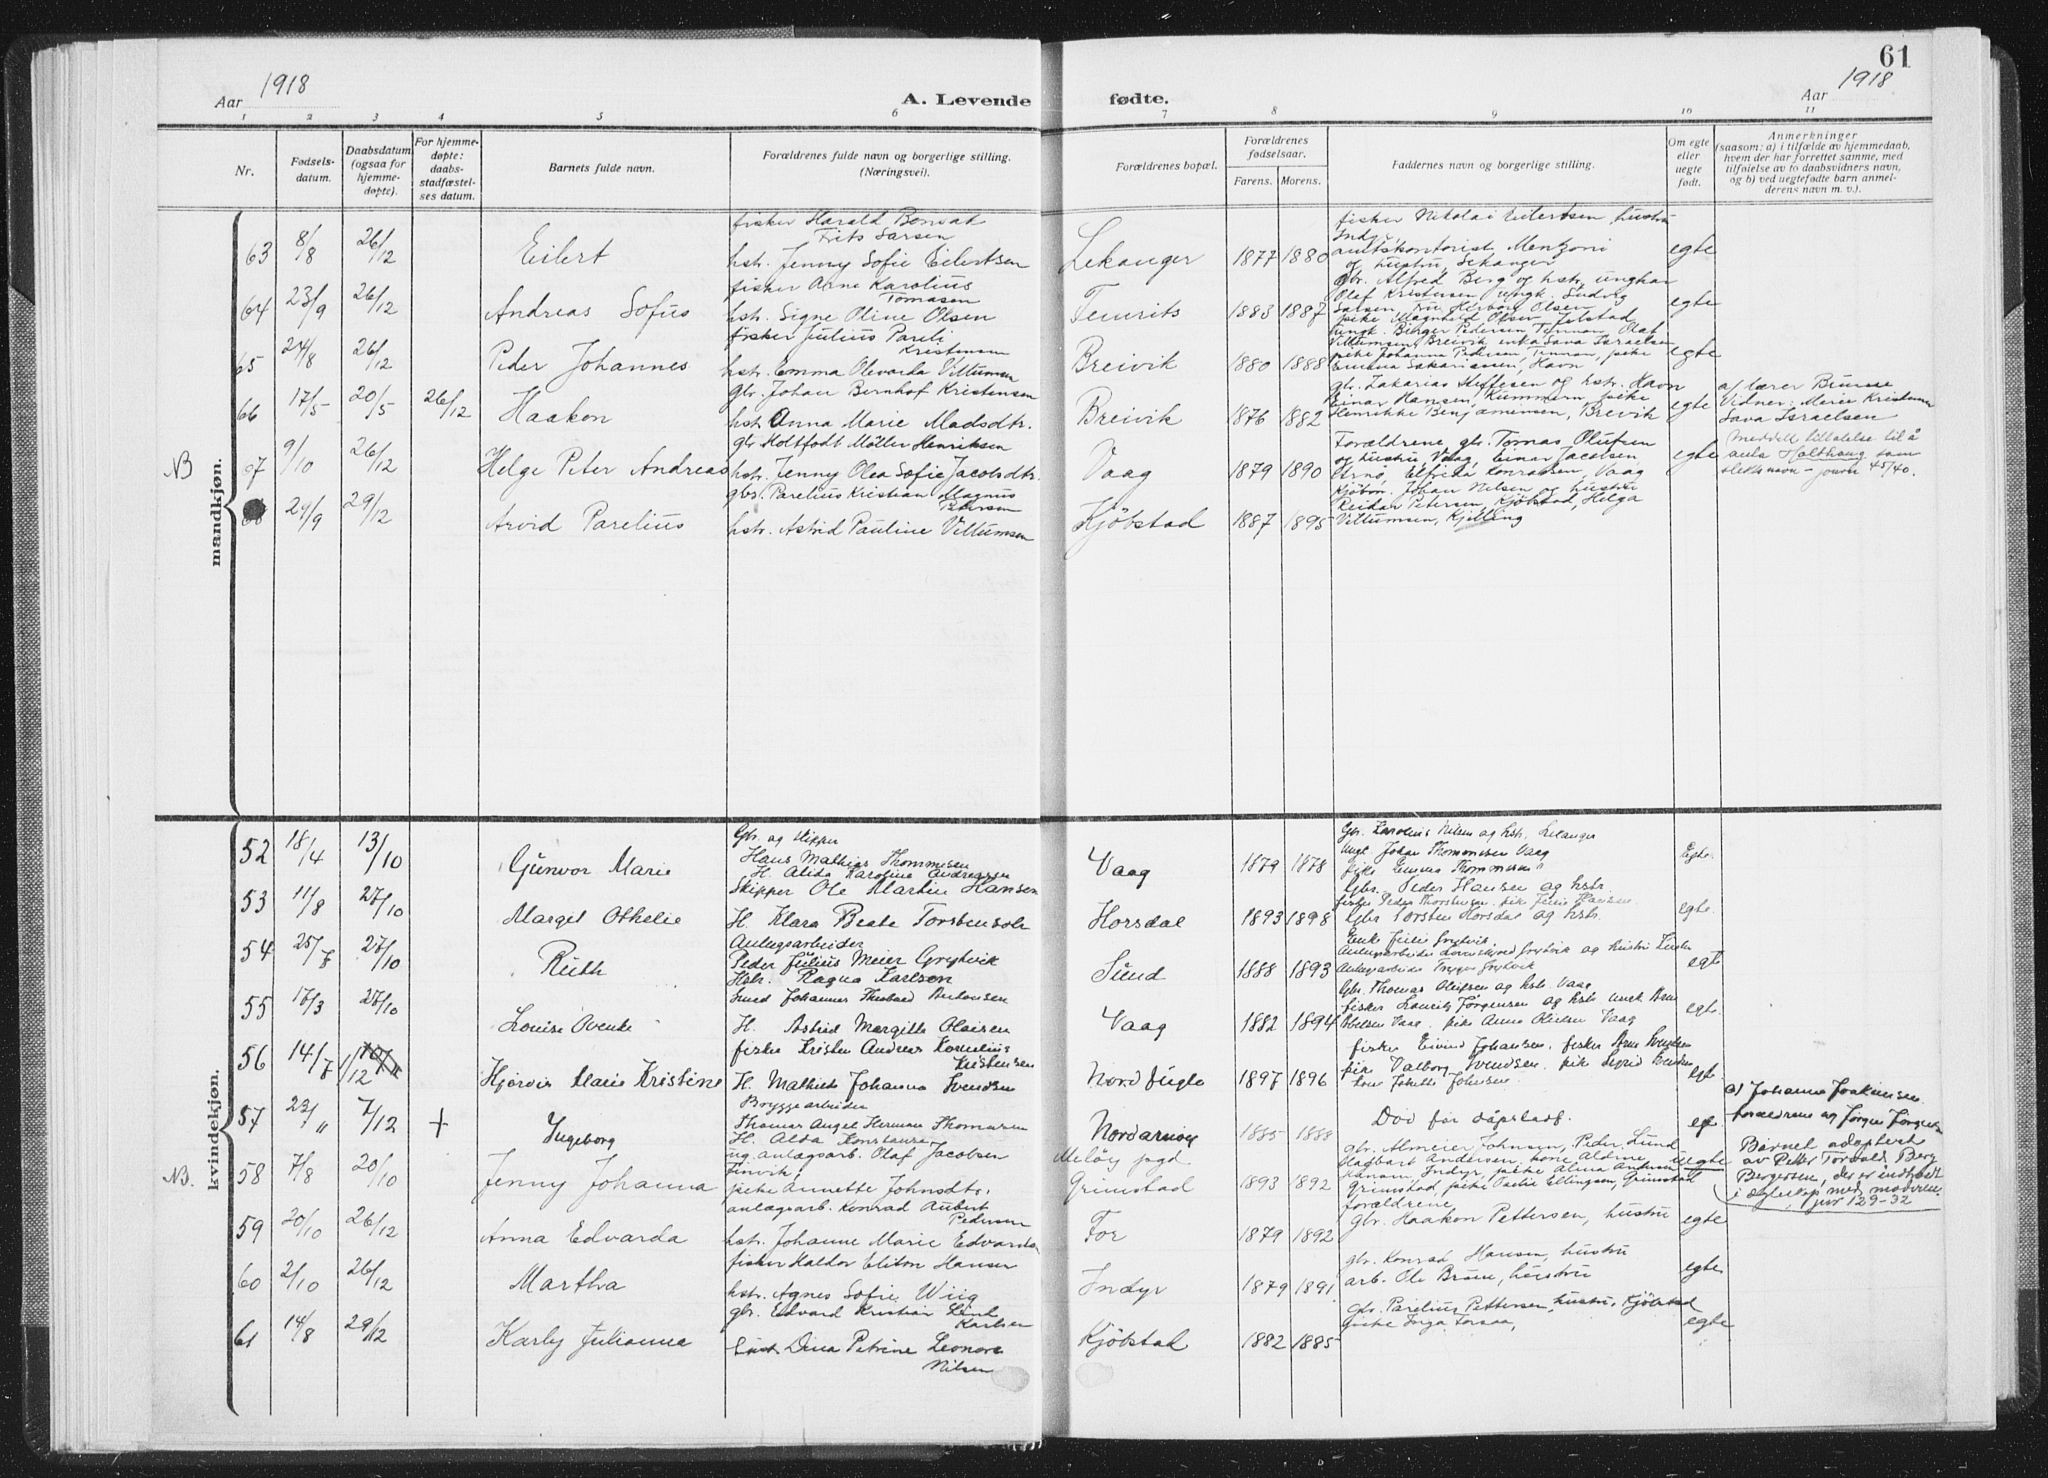 61
Aar 1918
A. Levende
fødte.
Aar 1918
1 2 3 4 5 6 7 8 9 10 11
Nr.
Fødsels-
datum.
Daabsdatum
(ogsaa for
hjemme-
døpte).
For hjemme-
døpte:
daabs-
stadfæstel-
ses datum.
Barnets fulde navn.
Forældrenes fulde navn og borgerlige stilling.
(Næringsvei).
Forældrenes bopæl.
Forældrenes
fødselsaar.
Farens. Morens.
Faddernes navn og borgerlige stilling.
Om egte
eller
uegte
født.
Anmerkninger
(saasom: a) i tilfælde av hjemmedaab,
hvem der har forrettet samme, med
tilføielse av to daabsvidners navn,
og b) ved uegtefødte barn anmel-
derens navn m. v.).
mandkjøn.
fisker Harald
63 8/8 26/12 Eilert
hst. Jenny Sofie Eilertsen
Lekanger 1877 1880
fisker Nikolai Eilertsen, hustru
Indyr
amtskontorist Mentzoni
og hustru, Lekanger
egte
fisker Arne Karolius
Tomasen
64 23/9 26/12 Andreas Sofus
hst. Signe Oline Olsen
1883 1887
gbr. Alfred Berg og hstr, ungkar
Olaf Kristensen, ungk. Ludvig
egte
fisker Julius Pareli
Kristensen
65 24/8 26/12 Peder Johannes
hst. Emma Olevarda Villumsen
Breivik 1880 1888
ungk. Birger Pedersen, Tennan, Olaf
Villumsen, Breivik, enke Sava Israelsen
pike Johanna Pedersen, Tennan, pike
Emma Sakariassen, Havn
egte
gbr. Johan Bernhof Kristensen
66 17/5 20/5 26/12 Haakon
hst. Anna Marie Madsdtr.
Breivik 1876 1882
gbr. Zakarias Steffesen og hstr. Havn
Einar Hansen, Kummern, pike
Henrikke Benjaminsen, Breivik
egte
a/ lærer Bruuse
Vidner: Marie Kristensen
Sava Israelsen
NB
gbr. Holtfodt Møller Henriksen
67 9/10 26/12 Helge Peter Andreas
hstr. Jenny Olea Sofie Jacobsdtr.
Vaag 1879 1890
Forældrene, gbr. Tomas Olufsen
og hustru Vaag, Einar Jacobsen
Arnø, Elfrida Konradsen, Vaag
egte
Meddelt tillatelse til å
anta Holthaug som
slektsnavn - journ 45/40.
gbr. Parelius Kristian Magnus
Petersen
68 24/9 29/12 Arvid Parelius
hstr. Astrid Pauline Villumsen
Kjøbstad 1887 1895
Johan Nilsen og hustru
Reidar Petersen, Kjøbstad, Helga
Villumsen, Kjelling
kvindekjøn.
Gbr. og skipper
Hans Mathias Thommesen
52 18/4 13/10 Gunvor Marie
H. Alida Karoline Andreassen
Vaag 1879 1878
Gbr. Karolius Nilsen og hstr. Lekanger
Ungk. Johan Thommesen Vaag
pike Emma Thommesen
Egte.
Skipper Ole Martin Hansen
53 11/8 27/10 Marget Othelie
H. Klara Beate Torstensdtr
Horsdal 1893 1898
Gbr. Peder Hansen og hstr.
fisker Peder Thorstensen, pike Julie Hansen.
Gbr Torsten Horsdal og hstr.
egte.
Anlegsarbeider
Peder Julius Meier Grytvik
54 25/8 27/10 Ruth
Hstr. Ragna Karlsen
Sund 1888 1893
Enke Julie Grytvik,
Anlegsarbeider Trygve Grytvik
egte
Smed Johannes Theobald Antonsen
55 17/3 27/10 Louise Ovenke
H. Astrid Margitte Olaisen
Vaag 1882 1894
Gbr. Thomas Olufsen og hstr. Vaag
fisker Lauritz Jørgensen og hstr. ungk Arne
Olsen Vaag. pike Anna Olufsen Vaag
egte.
fisker Kristen Andreas Kornelius
Kristensen
56 14/8 1/12 Hjørdis Marie Kristine
H. Mathilde Johanna Svendsen
Nord Fugle 1897 1896
fisker Eivind Johansen. fisker Arne Svendsen
pike Valborg Svendsen. pike Sigrid Svendsen
egte
Bryggearbeider
Thomas Angel Herman Thomassen
57 23/11 7/12 + Ingeborg
H. Alda Konstanse
Nordarnøy 1885 1888
Død før dåpsstadf.
egt
a) Johanna Joakimsen
foreldrene og Jørgen Jørgensen
NB.
ug. anlægsarb. Olaf Jacobsen
Finvik,
58 7/8 20/10 Jenny Johanna
pike Annette Johnsdtr.
Meløy pgd
Grimstad 1893 1892
gbr. Almeier Johnsen, Peder Lund
Dagbart Andersen, kone Aldine
Hanam, Indyr, pike Alma Antonsen
Grimstad, pike Paula Ellingsen, Grimstad
uegte
Barnet adoptert
av Peter Torvald Berg
Bergersen, der er indtraadt
i ægteskap med moderen.
jnr 129-32
anlægsarb. Konrad Aubert
Pedersen
59 20/10 26/12 Anna Edvarda
hstr. Johanne Marie Edvarda
For 1879 1892
forældrene,
gbr. Haakon Pettersen, hustru
egte
fisker Haldor Eliton Hansen
60 2/10 26/12 Martha
hstr. Agnes Sofie Wiig
Indyr 1879 1891
gbr. Konrad Hansen, hustru
arb. Ole Bruun, hustru
egte
gbr. Edvard Kristian Emil
Karlsen
61 14/8 29/12 Karly Julianna
Dina Petrine Leonora
Nilsen
Kjøbstad 1882 1885
gbr. Parelius Pettersen, hustru, Kjøbstad
pike Inga Torsaa,
egte